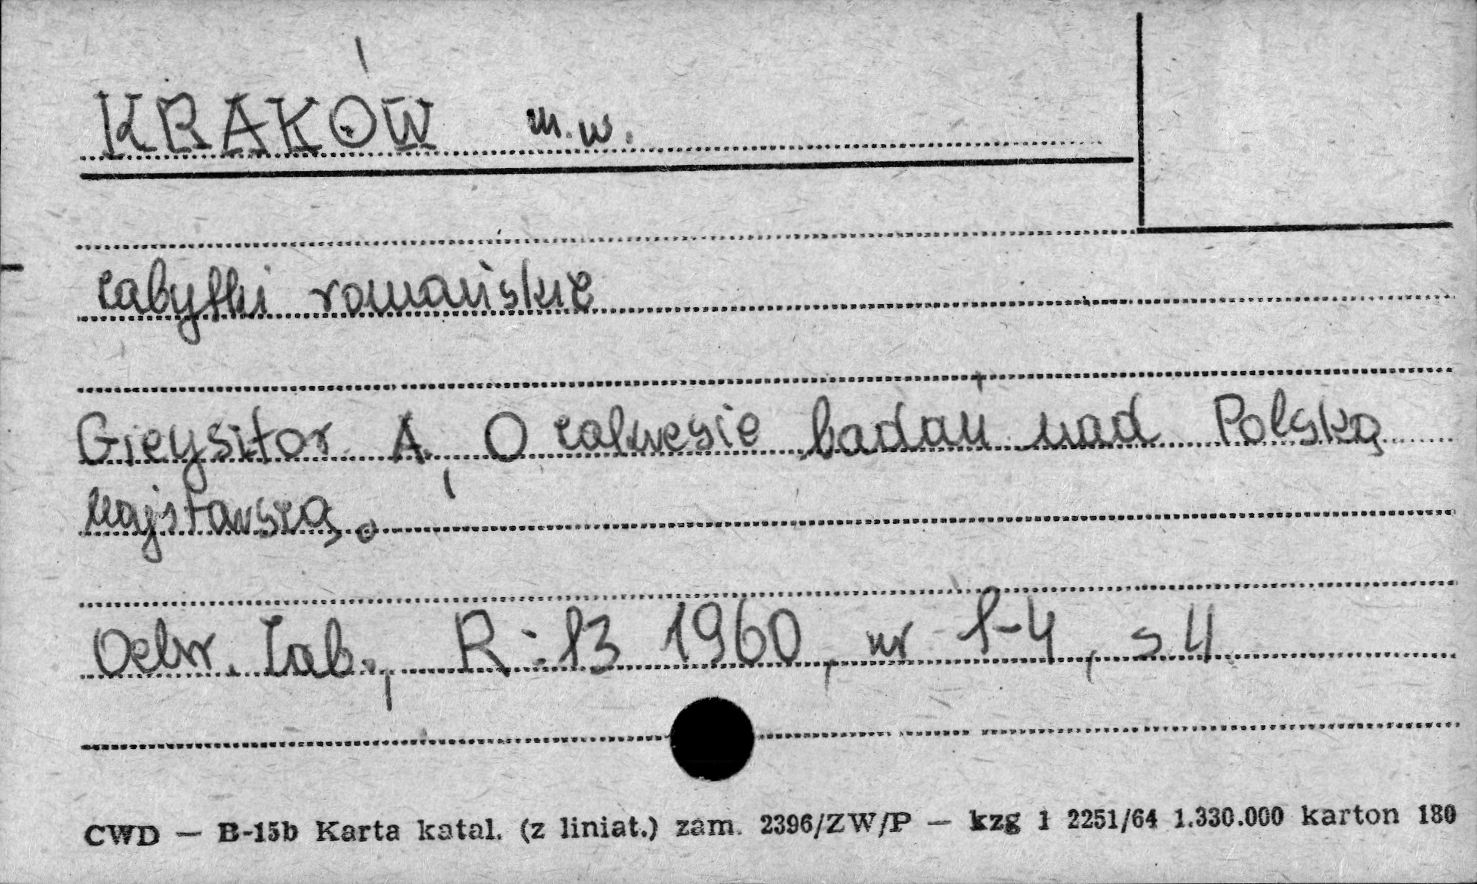 KRAKÓW m.w.
zabytki romańskie
Gieysztor A., O zakresie badań nad Polską
najstarszą.
Ochr. Zab., R: 13 1960, nr 1-4, s 4
CWD — B-15b Karta katal. (z liniat.) zam. 2396/ZW/P — kzg 1 2251/64 1.330.000 karton 180